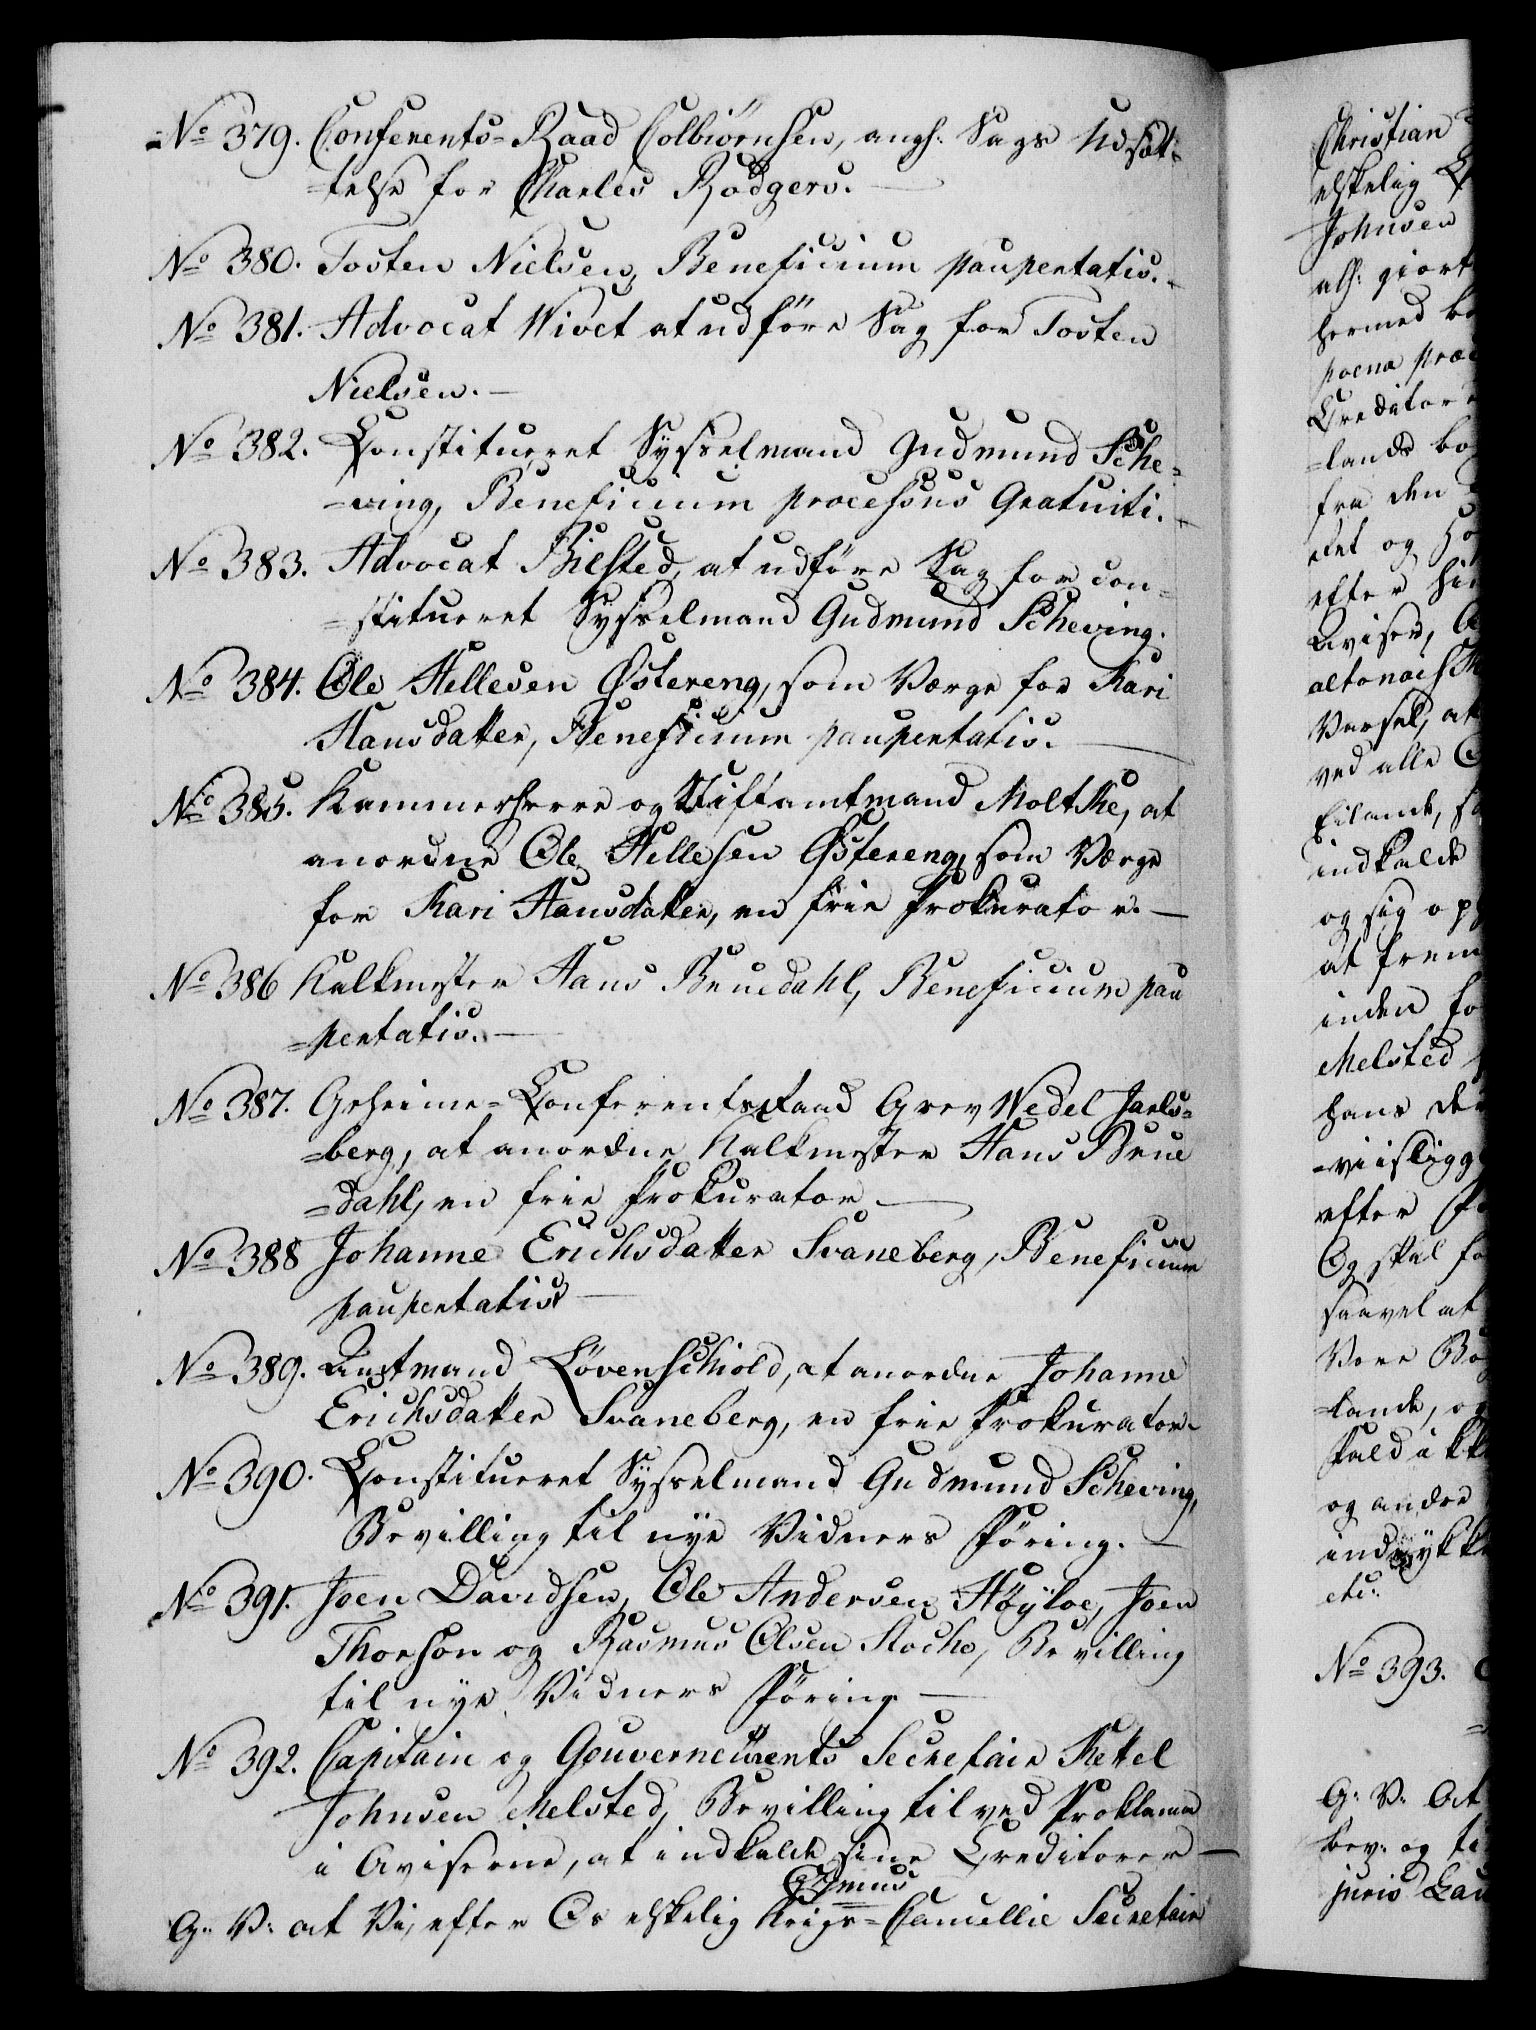 No 379. Conferents-Raad Colbiørnsen, angl: Sags Udsæt-
-telse for Charles Rodgers.
No 380. Tosten Nielsen, Beneficium paupertatis.
No 381. Advocat Wivet at udföre Sag for Tosten
Nielsen.
No 382. Constitueret Sysselmand Gudmund Sche-
-ving, Beneficium processus Gratuiti.
No 383. Advocat Bilsted, at udföre Sag for con-
-stitueret Sysselmand Gudmund Scheving.
No 384. Ole Hellesen Østereng, som Værge for Kari
Hansdatter, Beneficium paupertatis.
No 385. Kammerherre og Stiftamtmand Moltke, at
anordne Ole Hellesen Østereng, som Værge
for Kari Hansdatter, en frie Prokurator.
No 386 Kalkmester Hans Bruedahl, Beneficium pau
-pertatis.
No 387. Geheime-Conferentsraad Grev Wedel Jarls-
-berg, at anordne Kalkmester Hans Brue
-dahl, en frie Prokurator
No 388 Johanne Erichsdatter Svaneberg, Beneficium
paupertatis
No 389. Amtmand Løvenschiold, at anordne Johanne
Erichsdatter Svaneberg, en frie Prokurator.
No 390. Constitueret Sysselmand Gudmund Scheving,
Bevilling til nye Vidners Föring.
No 391. Joen Davidsen, Ole Andersen Høÿloe, Joen
Thorson og Rasmus Olsen Stocke, Bevilling
til nye Vidners Föring
No 392. Capitain og Gouvernements Secretair Ketel
Johnsen Melsted, Bevilling til ved Proklama
i Aviserne, at indkalde sine Creditorer
G: V: at Vi, efter Os elskelig Krigs-Cancellie Secretair
Christian
elskelig
Johnsen
all: giort
hermed
poena præ
Creditor
-lands
fra den
det og
efter
Aviser,
altonaisk
Varsel, at
ved alle
Eiland,
indkalde
og sig
at frem
inden
Melsted
hans
-viisligg
efter
Og skal
saavel at
Vore
-lande, og
fald ikk
og andre
indrykk
etc:
No 393.
G: V: At
bev: og
juris